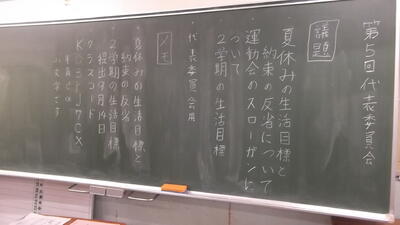 第5回代表委員会
議題
・夏休みの生活目標と
約束の反省について
・運動会のスローガンに
ついて
・2学期の生活目標
・代表委員会用
メモ
・夏休みの生活目標と
約束の反省
・2学期の生活目標
提出9月14日
クラスコード
小文字です